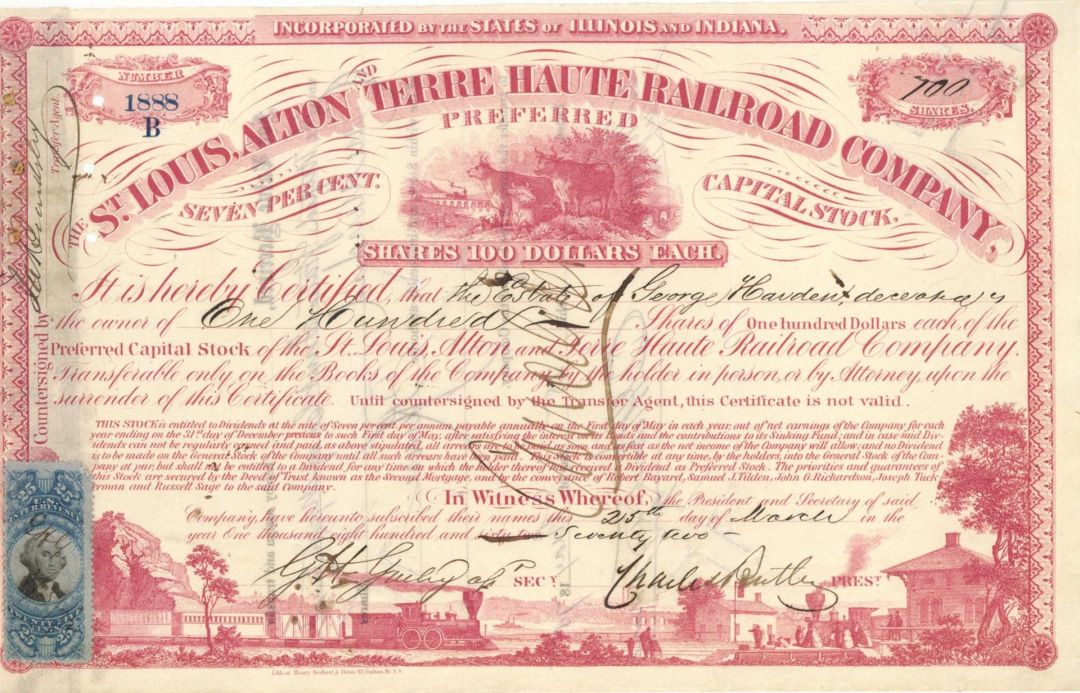 INCORPORATED BY THE STATES OF ILLINOIS AND INDIANA.
NUMBER
1888
B
700
SHARES.
THE ST. LOUIS, ALTON AND TERRE HAUTE RAILROAD COMPANY,
PREFERRED
SEVEN PER CENT.
CAPITAL STOCK.
SHARES 100 DOLLARS EACH.
It is hereby Certified, that the Estate of George Harden deceased is
the owner of One Hundred Shares of One hundred Dollars each, of the
Preferred Capital Stock of the St. Louis, Alton and Terre Haute Railroad Company.
Transferable only on the Books of the Company by the holder in person, or by Attorney, upon the
surrender of this Certificate. Until countersigned by the Transfer Agent, this Certificate is not valid.
THIS STOCK is entitled to Dividends at the rate of Seven per cent per annum, payable annually on the First day of May in each year, out of net earnings of the Company for each
year ending on the 31st day of December previous to such First day of May, after satisfying the interest on the bonds and the contributions to its Sinking Fund; and in case said Div-
idends can not be regularly earned and paid, as above stipulated, all arrears are to be paid, as soon and as fast as the net income of the Company will allow; and no Dividend
is to be made on the General Stock of the Company until all such arrears have been paid. This Stock is convertible at any time, by the holders, into the General Stock of the Com-
pany at par, but shall not be entitled to a Dividend for any time on which the holder thereof has received a Dividend as Preferred Stock. The priorities and guarantees of
this Stock are secured by the Deed of Trust known as the Second Mortgage, and by the conveyance of Robert Bayard, Samuel J. Tilden, John O. Richardson, Joseph Tuck
erman and Russell Sage to the said Company.
In Witness Whereof, the President and Secretary of said
Company, have hereunto subscribed their names this 25th day of March in the
year One thousand eight hundred and sixty two Seventy two
SEC'Y
Charles Butler PREST
Countersigned by
Transfer Agent.
25
25
U.S.
INTER. REVENUE
25
25
Lith of Henry Seibert & Bros. 97 Fulton St. N.Y.